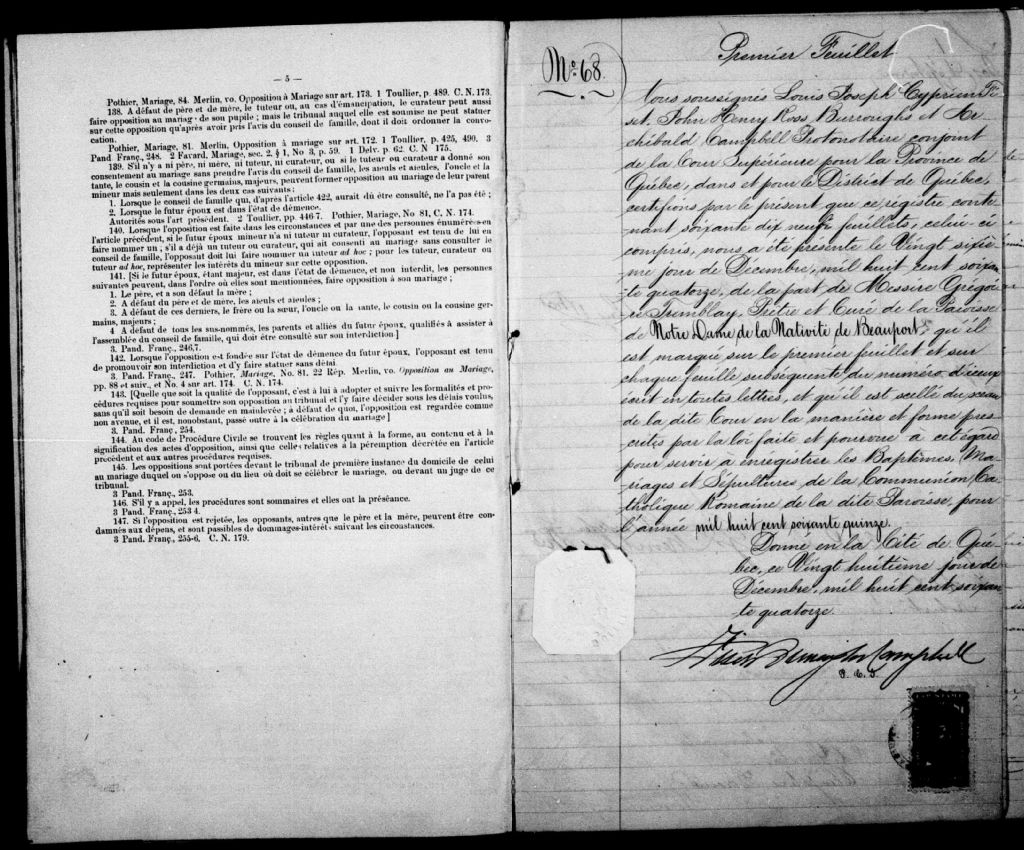 — 5 —
Pothier, Mariage, 84. Merlin, vo. Opposition à Mariage sur art. 173. 1 Toullier, p. 489. C. N. 173.
138. A défaut de père et de mère, le tuteur ou, au cas d'émancipation, le curateur peut aussi
faire opposition au mariage de son pupile ; mais le tribunal auquel elle est soumise ne peut statuer
sur cette opposition qu'après avoir pris l'avis du conseil de famille, dont il doit ordonner la convo-
cation.
Pothier, Mariage, 81. Merlin, Opposition à mariage sur art. 172. 1 Toullier, p. 425, 490. 3
Pand. Franç., 248. 2 Favard, Mariage, sec. 2, § 1, No 3, p. 59. 1 Delv. p. 62. C. N. 175.
139. S'il n'y a ni père, ni mère, ni tuteur, ni curateur, ou si le tuteur ou curateur a donné son
consentement au mariage sans prendre l'avis du conseil de famille, les aïeuls et aïeules, l'oncle et la
tante, le cousin et la cousine germains, majeurs, peuvent former opposition au mariage de leur parent
mineur mais seulement dans les deux cas suivants :
1. Lorsque le conseil de famille qui, d'après l'article 422, aurait dû être consulté, ne l'a pas été ;
2. Lorsque le futur époux est dans l'état de démence.
Autorités sous l'art précédent. 2 Toullier, pp. 446 7. Pothier, Mariage, No 81, C. N. 174.
140. Lorsque l'opposition est faite dans les circonstances et par une des personnes énumérées en
l'article précédent, si le futur époux mineur n'a ni tuteur ni curateur, l'opposant est tenu de lui en
faire nommer un ; s'il a déjà un tuteur ou curateur, qui ait consenti au mariage sans consulter le
conseil de famille, l'opposant doit lui faire nommer un tuteur ad hoc ; pour les tuteur, curateur ou
tuteur ad hoc, représenter les intérêts du mineur sur cette opposition.
141. [Si le futur époux, étant majeur, est dans l'état de démence, et non interdit, les personnes
suivantes peuvent, dans l'ordre où elles sont mentionnées, faire opposition à son mariage ;
1. Le père, et a son défaut la mère ;
2. A défaut du père et de mère, les aïeuls et aïeules ;
3. A défaut de ces derniers, le frère ou la sœur, l'oncle ou la tante, le cousin ou la cousine ger-
mains, majeurs ;
4 A défaut de tous les sus-nommés, les parents et alliés du futur époux, qualifiés à assister à
l'assemblée du conseil de famille, qui doit être consulté sur son interdiction.]
3. Pand. Franç., 246,7.
142. Lorsque l'opposition est fondée sur l'état de démence du futur époux, l'opposant est tenu
de promouvoir son interdiction et d'y faire statuer sans délai.
3. Pand. Franç., 247. Pothier, Mariage, No. 81. 22 Rép. Merlin, vo. Opposition au Mariage,
pp. 88 et suiv., et No. 4 sur art. 174. C. N. 174.
143. [Quelle que soit la qualité de l'opposant, c'est à lui à adopter et suivre les formalités et pro-
cédures requises pour soumettre son opposition au tribunal et l'y faire décider sous les délais voulus,
sans qu'il soit besoin de demande en mainlevée ; à défaut de quoi, l'opposition est regardée comme
non avenue, et il est, nonobstant, passé outre à la célébration du mariage]
3. Pand. Franç., 254.
144. Au code de Procédure Civile se trouvent les règles quant à la forme, au contenu et à la
signification des actes d'opposition, ainsi que celles relatives à la péremption décrétée en l'article
précédent et aux autres procédures requises.
145. Les oppositions sont portées devant le tribunal de première instance du domicile de celui
au mariage duquel on s'oppose ou du lieu où doit se célébrer le mariage, ou devant un juge de ce
tribunal.
3 Pand. Franç., 253.
146. S'il y a appel, les procédures sont sommaires et elles ont la préséance.
3 Pand. Franç., 253 4.
147. Si l'opposition est rejetée, les opposants, autres que le père et la mère, peuvent être con-
damnés aux dépens, et sont passibles de dommages-intérêts suivant les circonstances.
3 Pand. Franç., 255-6. C. N. 179.
No. 68.
Premier Feuillet
Nous soussignés Louis Joseph Cyprien Fi-
set, John Henry Ross Burroughs et Ar-
chibald Campbell Protonotaire conjoint
de la Cour Supérieure pour la Province de
Québec, dans et pour le District de Québec,
certifions par le présent que ce registre conte-
nant soixante dix neuf feuillets, celui-ci
compris, nous a été présenté le Vingt sixiè-
me jour de Décembre, mil huit cent soixan-
te quatorze, de la part de Messire Grégoi-
re Tremblay, Prêtre et Curé de la Paroisse
de Notre Dame de la Nativité de Beauport, qu'il
est marqué sur le premier feuillet et sur
chaque feuille subséquente du numéro d'iceux
écrit en toutes lettres, et qu'il est scellé du sceau
de la dite Cour en la manière et forme pres-
crites par la loi faite et pourvue à cet égard
pour servir à enrégistrer les Baptêmes, Ma-
riages et Sépultures de la Communion Ca-
tholique Romaine de la dite Paroisse, pour
l'année mil huit cent soixante quinze.
Donné en la Cité de Qué-
bec, ce Vingt huitième jour de
Décembre, mil huit cent soixan-
te quatorze.
Fiset Burroughs Campbell
P. C. S.